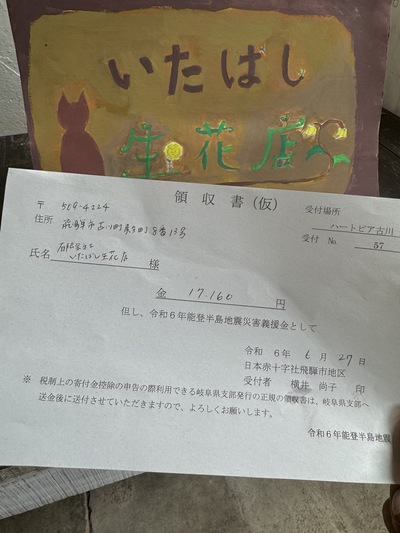 いたばし
生花店
領収書(仮)
〒 509-4224
受付場所
住所 飛騨市古川町 8番13号
ハートピア古川
受付 No 57
氏名 有限会社 いたばし生花店 様
金 17.160 円
但し、令和6年能登半島地震災害義援金として
令和 6年 6月 27日
日本赤十字社飛騨市地区
受付者 横井 尚子 印
※ 税制上の寄付金控除の申告の際利用できる岐阜県支部発行の正規の領収書は、岐阜県支部へ
送金後に送付させていただきますので、よろしくお願いします。
令和6年能登半島地震